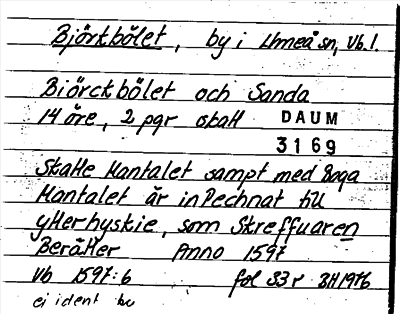 Björkbölet, by i Umeå sn, Vb. l.
Biörckbölet och Sanda
14 öre, 2 pgr skatt DAUM
3169
Skatte Mantalet sampt med Boga
Mantalet är inRechnat till
ytterbyskie, som Skreffuaren
Berätter Anno 1597
Vb 1597:6 fol 33r BH1976
ej ident bu